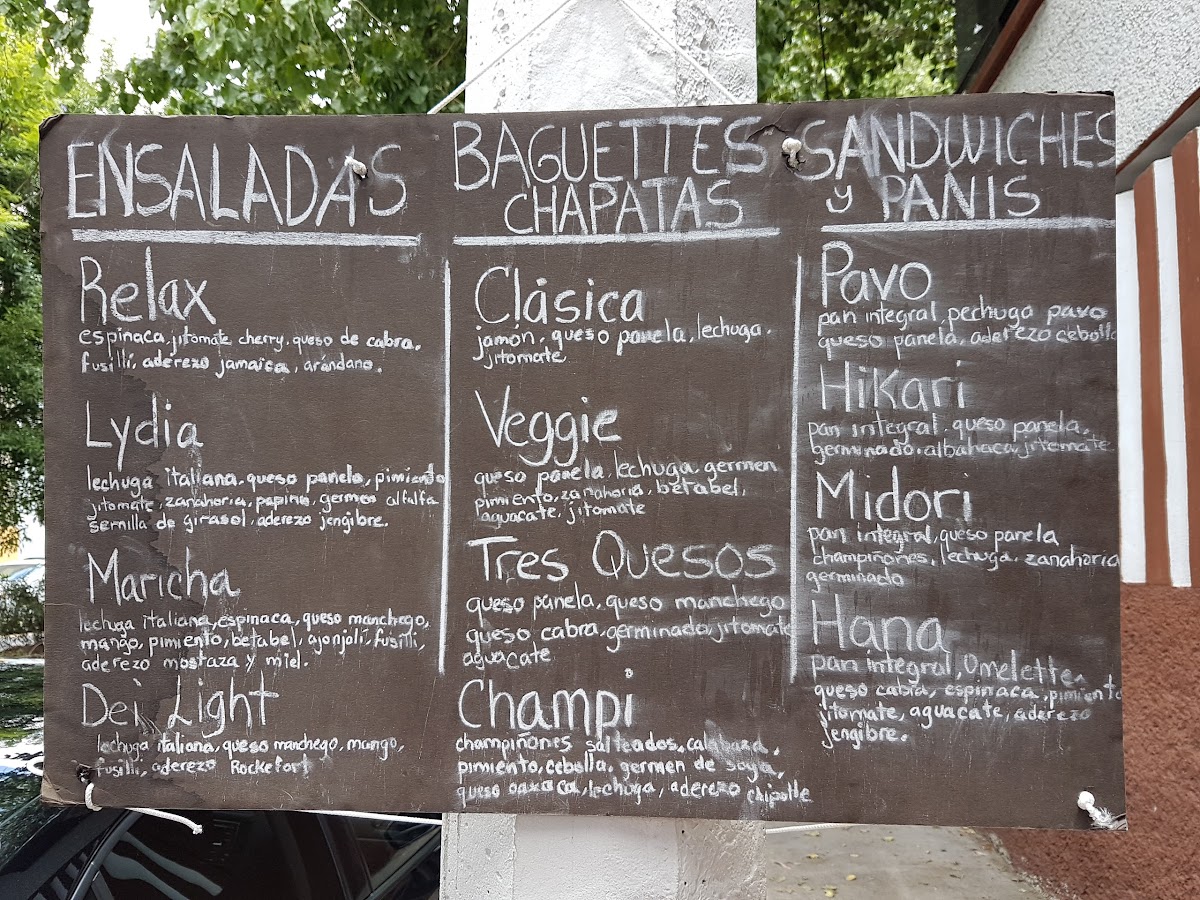 ENSALADAS
Relax
espinaca, jitomate cherry, queso de cabra.
fusilli, aderezo jamaica, arándano.
Lydia
lechuga italiana, queso panela, pimiento
jitomate, zanahoria, pepino, germen alfalfa
semilla de girasol, aderezo jengibre.
Maricha
lechuga italiana, espinaca, queso manchego,
mango, pimiento, betabel, ajonjolí, fusilli,
aderezo mostaza y miel.
Dei Light
lechuga italiana, queso manchego, mango,
fusilli, aderezo Rockefort
BAGUETTES
CHAPATAS
Clásica
jamón, queso panela, lechuga.
jitomate
Veggie
queso panela, lechuga, germen
pimiento, zanahoria, betabel,
aguacate, jitomate
Tres Quesos
queso panela, queso manchego
queso cabra, germinado, jitomate
aguacate
Champi
champiñones salteados, calabaza,
pimiento, cebolla, germen de soya,
queso oaxaca, lechuga, aderezo chipotle
SANDWICHES
y PANIS
Pavo
pan integral, pechuga pavo
queso panela, aderezo cebolla
Hikari
pan integral. queso panela,
germinado, albahaca, jitomate
Midori
pan integral, queso panela
champiñones, lechuga, zanahoria
germinado
Hana
pan integral, Omelette,
queso cabra, espinaca, pimiento
jitomate, aguacate, aderezo
jengibre.